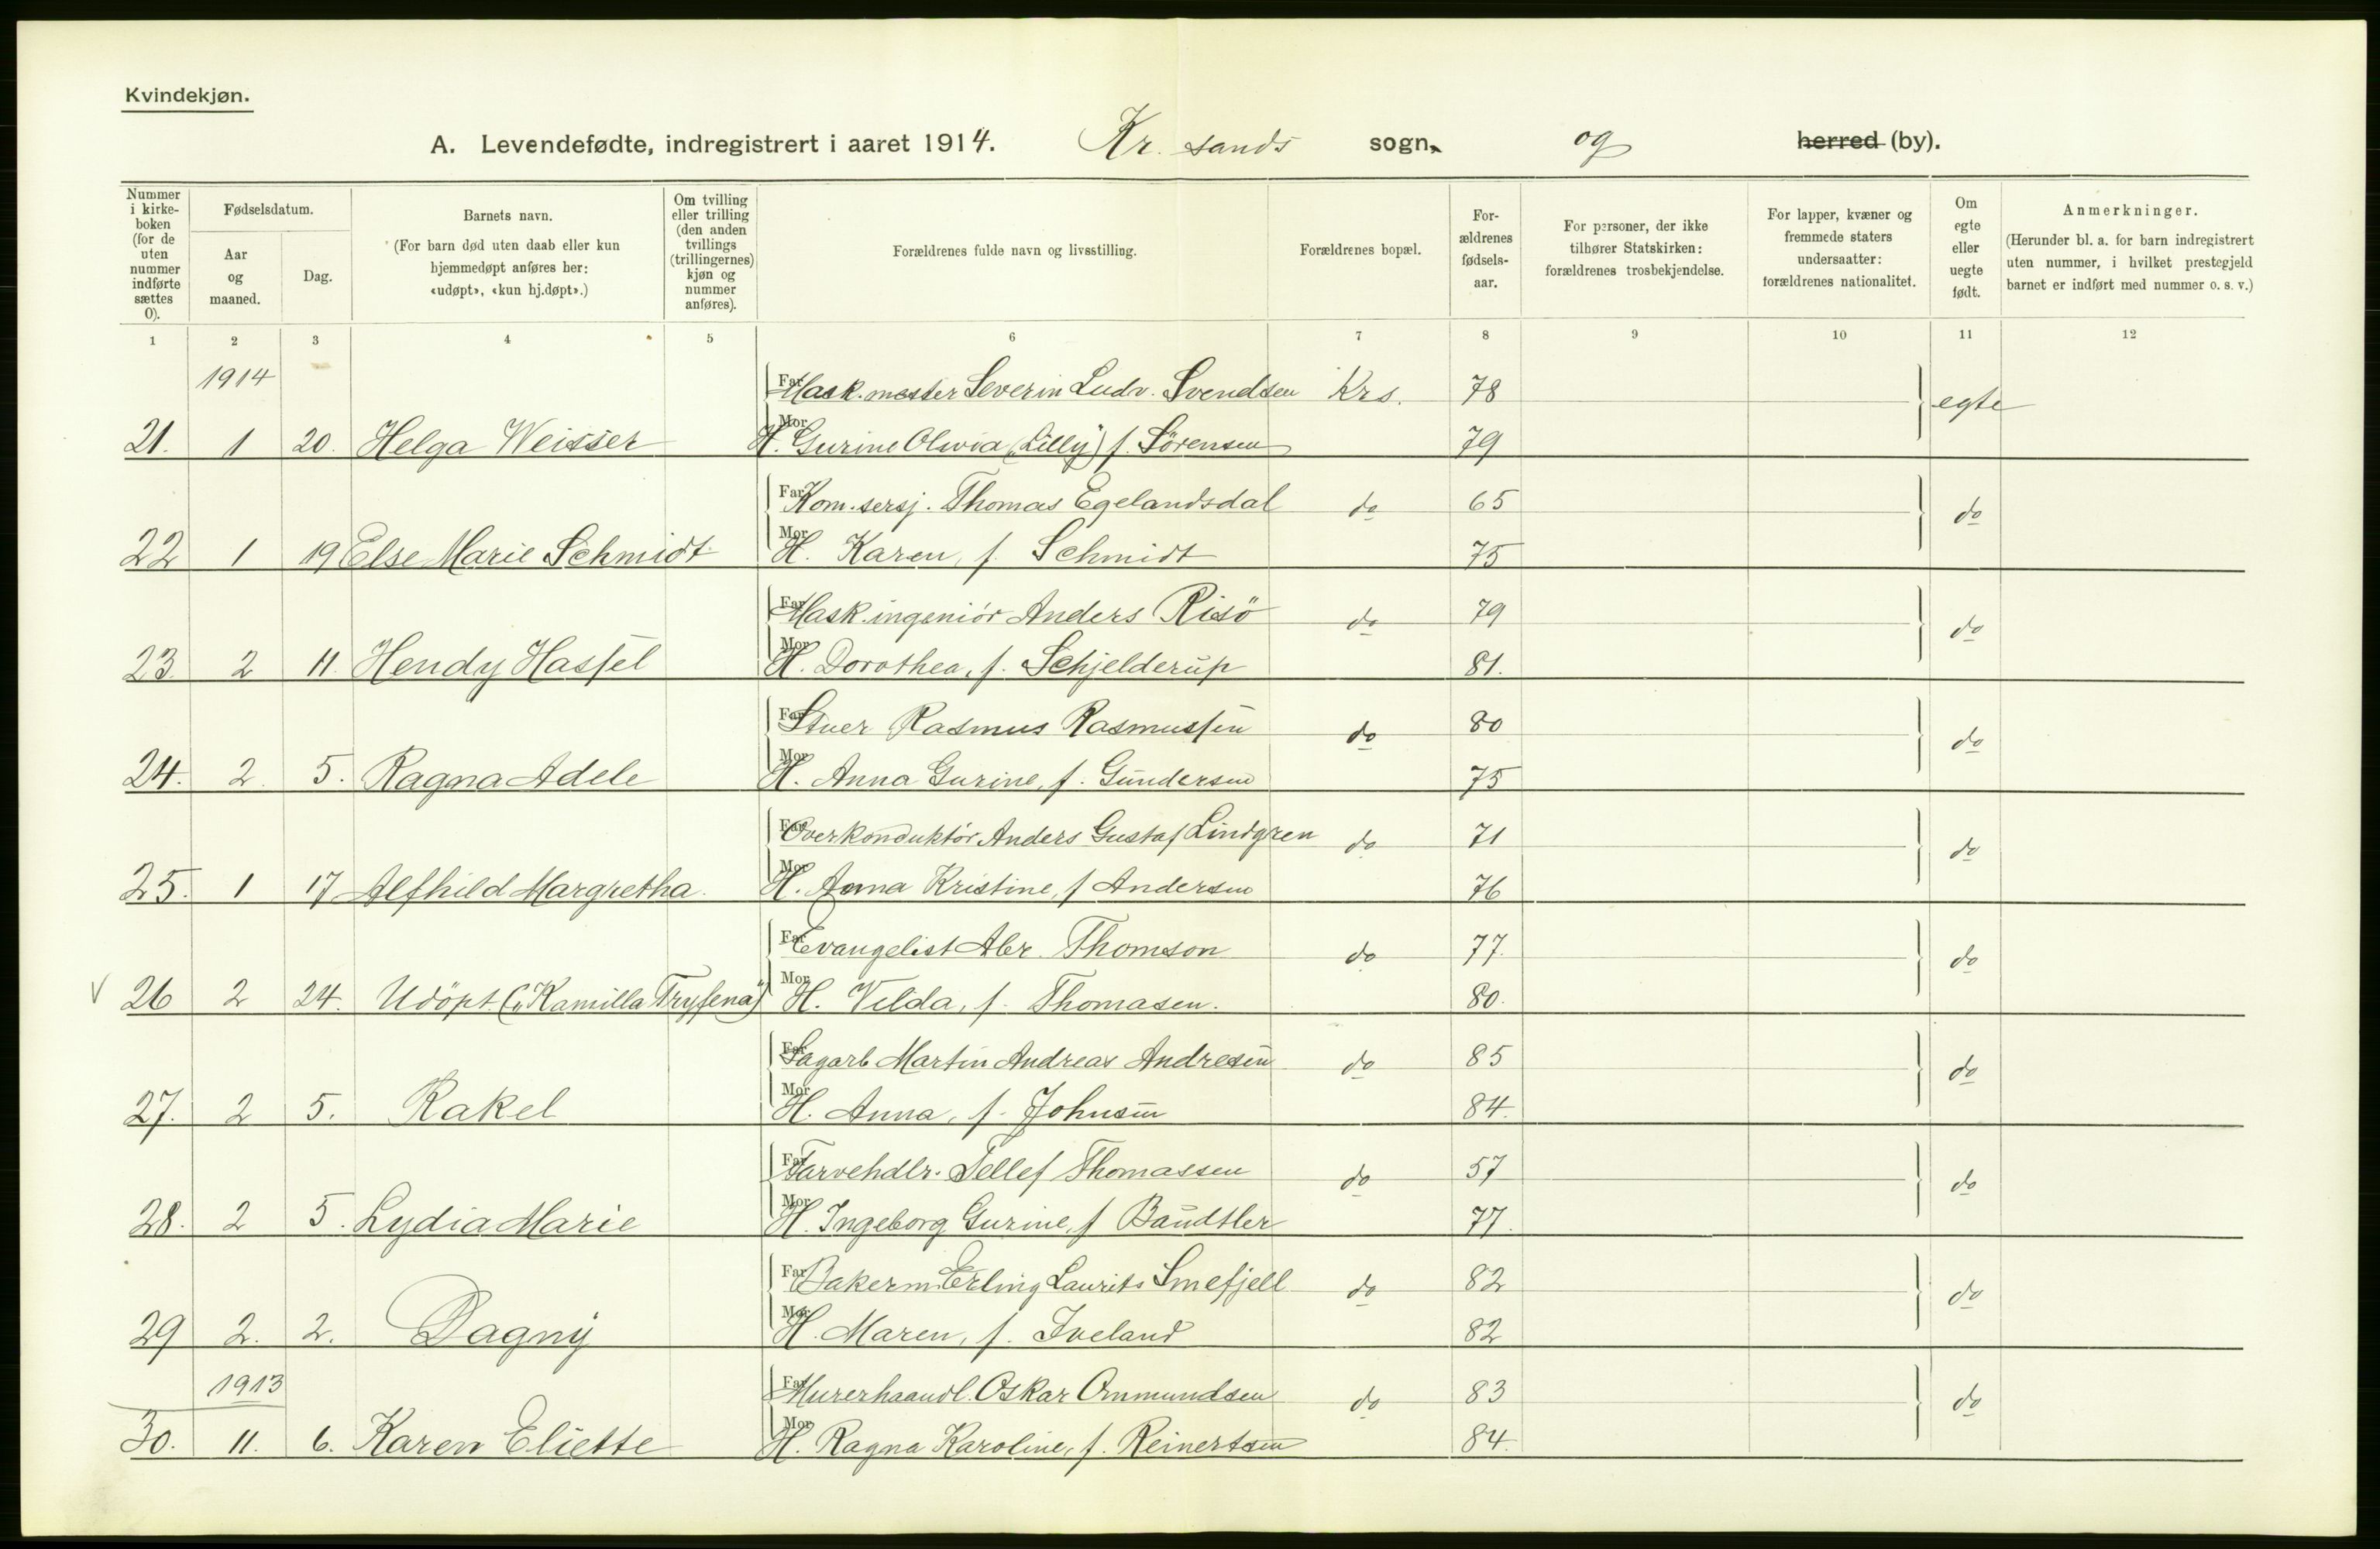 Kvindekjøn.
A. Levendefødte, indregistrert i aaret 1914. Kr. sands sogn. og herred (by).
Nummer i kirke-boken (for de uten nummer indførte sættes 0).
Fødselsdatum.
Aar og maaned.
Dag.
Barnets navn.
(For barn død uten daab eller kun hjemmedøpt anføres her: «udøpt», «kun hj.døpt».)
Om tvilling eller trilling (den anden tvillings (trillingernes) kjøn og nummer anføres).
Forældrenes fulde navn og livsstilling.
Forældrenes bopæl.
For-ældrenes fødsels-aar.
For personer, der ikke tilhører Statskirken: forældrenes trosbekjendelse.
For lapper, kvæner og fremmede staters undersaatter: forældrenes nationalitet.
Om egte eller uegte født.
Anmerkninger.
(Herunder bl. a. for barn indregistrert uten nummer, i hvilket prestegjeld barnet er indført med nummer o. s. v.)
1 2 3 4 5 6 7 8 9 10 11 12
1914
Far Mask.mester Severin Ludv. Svendsen Krs. 78 egte
21. 1 20. Helga Weisser Mor H. Gurine Olivia („Lilly") f. Sörensen 79
Far Kom.sersj. Thomas Egelandsdal do 65 do
22 1 19 Else Marie Schmidt Mor H. Karen, f. Schmidt 75
Far Mask.ingeniör Anders Risö do 79 do
23. 2 11. Hendy Hassel Mor H. Dorothea, f. Schjelderup 81.
Far Stuer Rasmus Rasmussen do 80 do
24. 2. 5. Ragna Adele Mor H. Anna Gurine, f. Gundersen 75
Far Overkonduktör Anders Gustaf Lindgren do 71 do
25. 1 17 Alfhild Margretha. Mor H. Anna Kristine, f Andersen 76
Far Evangelist Abr. Thomson do 77. do
V 26 2 24. Udöpt („Kamilla Tryfena") Mor H. Vilda, f. Thomasen. 80.
Far Sagarb Martin Andreas Andresen do 85 do
27. 2 5. Rakel Mor H. Anna, f. Johnsen 84.
Far Farvehdlr. Tellef Thomassen do 57 do
28. 2 5. Lydia Marie Mor H. Ingeborg Gurine, f Baudtler 77.
Far Bakerm. Erling Laurits Smefjell do 82 do
29 2. 2. Dagny Mor H. Maren, f. Iveland 82
1913
Far Murerhaandl. Oskar Ommundsen do 83 do
30. 11. 6. Karen Eliette Mor H. Ragna Karoline, f. Reinertsen 84.